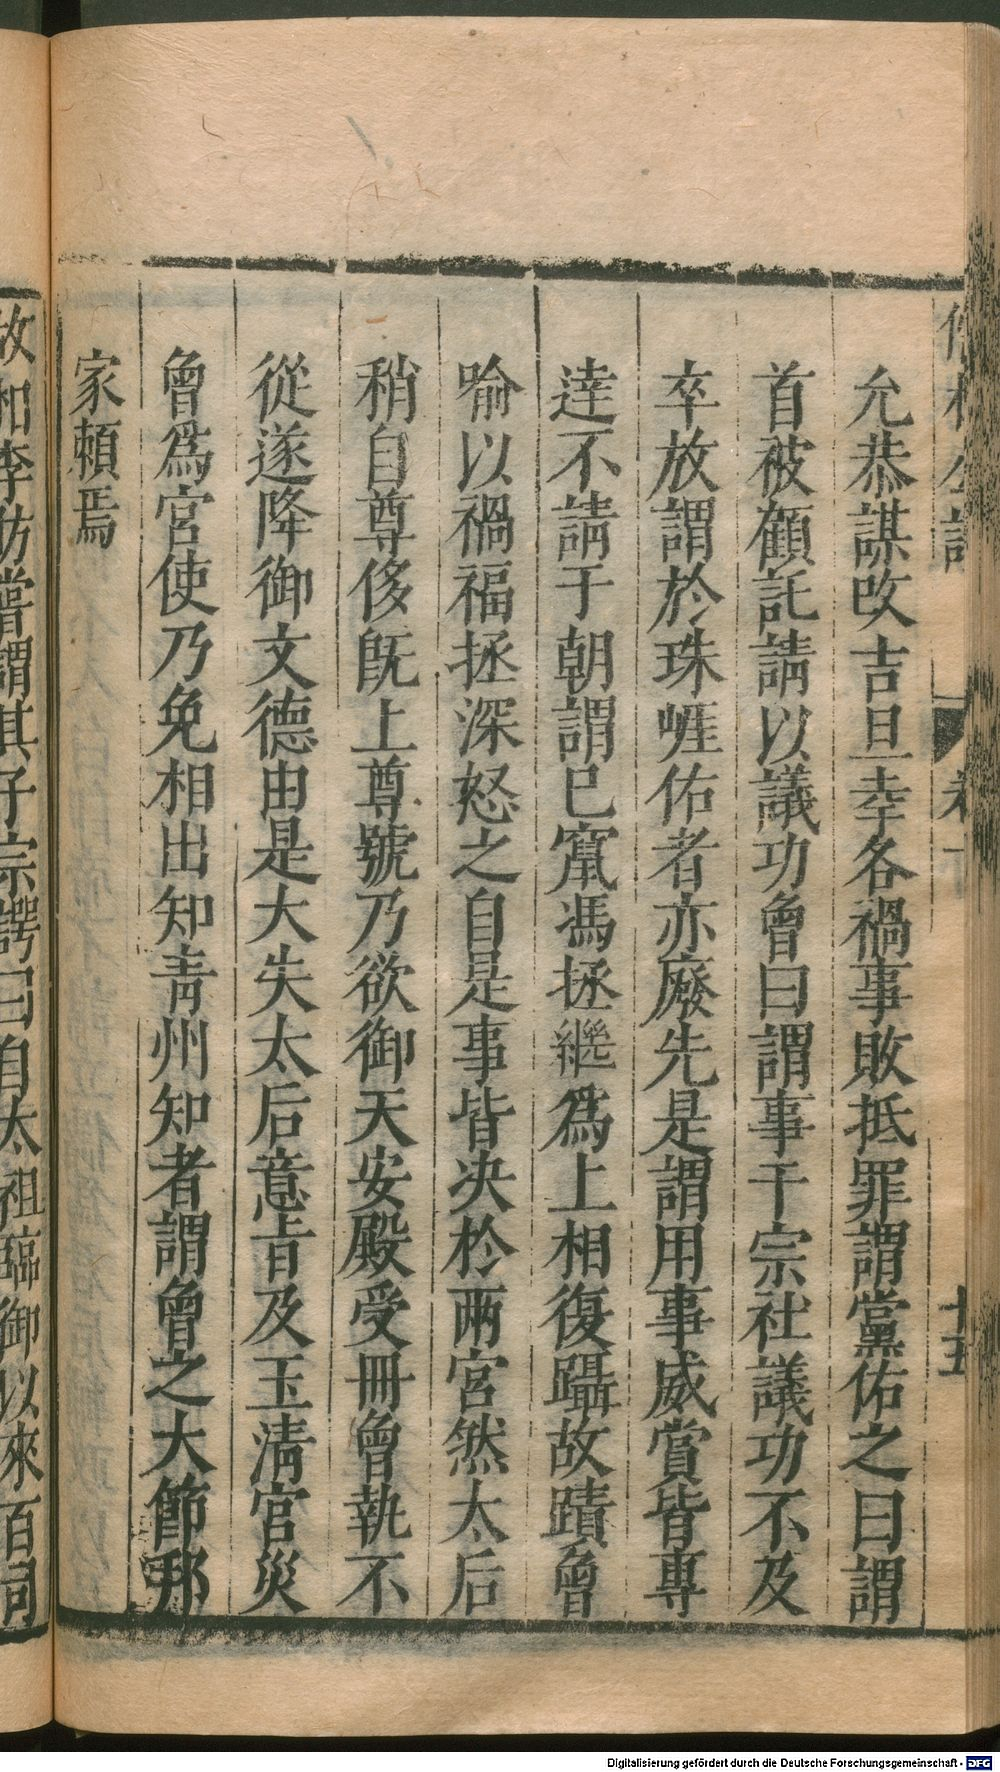 允恭謀攺吉旦幸各禍事敗抵罪謂黨佑之曰謂
首被顧託請以議功曾曰謂事干宗社議功不及
卒放謂於珠崕佑者亦廢先是謂用事威賞皆專
逹不請于朝謂巳竄馮拯繼爲上相復躡故蹟曾
喻以禍福拯深怒之自是事皆决於兩宮然太后
稍自尊侈旣上尊號乃欲御天安殿受冊曾執不
從遂降御文德由是大失太后意㫖及玉清官災
曾爲宮使乃免相出知青州知者謂曾之大節邦
家頼焉
故相李昉嘗謂其子宗諤曰自太祖臨御以來百司
卷下
十五
Digitalisierung gefördert durch die Deutsche Forschungsgemeinschaft - DFG